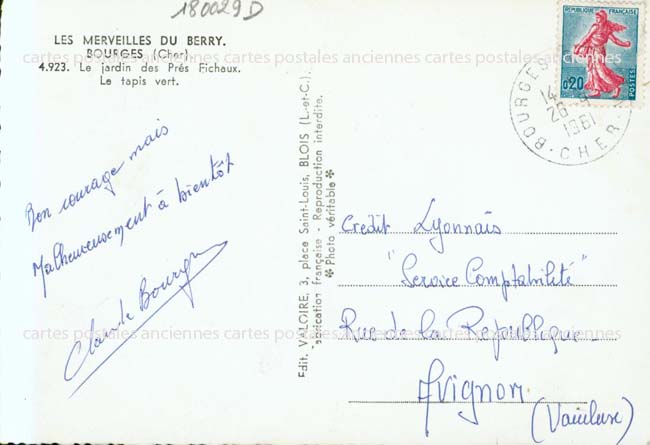 180029D
LES MERVEILLES DU BERRY.
BOURGES (Cher).
4.923. Le jardin des Prés Fichaux.
Le tapis vert.
REPUBLIQUE FRANÇAISE
0,20
POSTES
BOURGES
14
26
1961
CHER
cartes postales anciennes cartes postales anciennes cartes postales anciennes
Bon courage mais
Malheureusement à bientôt
Claude
Edit. VALOIRE, 3, place Saint-Louis, BLOIS (L.-et-C.).
Fabrication française - Reproduction interdite.
* Photo véritable *
Crédit Lyonnais
"Service Comptabilité"
Rue de la République
Avignon
(Vaucluse)
cartes postales anciennes cartes postales anciennes cartes postales anciennes